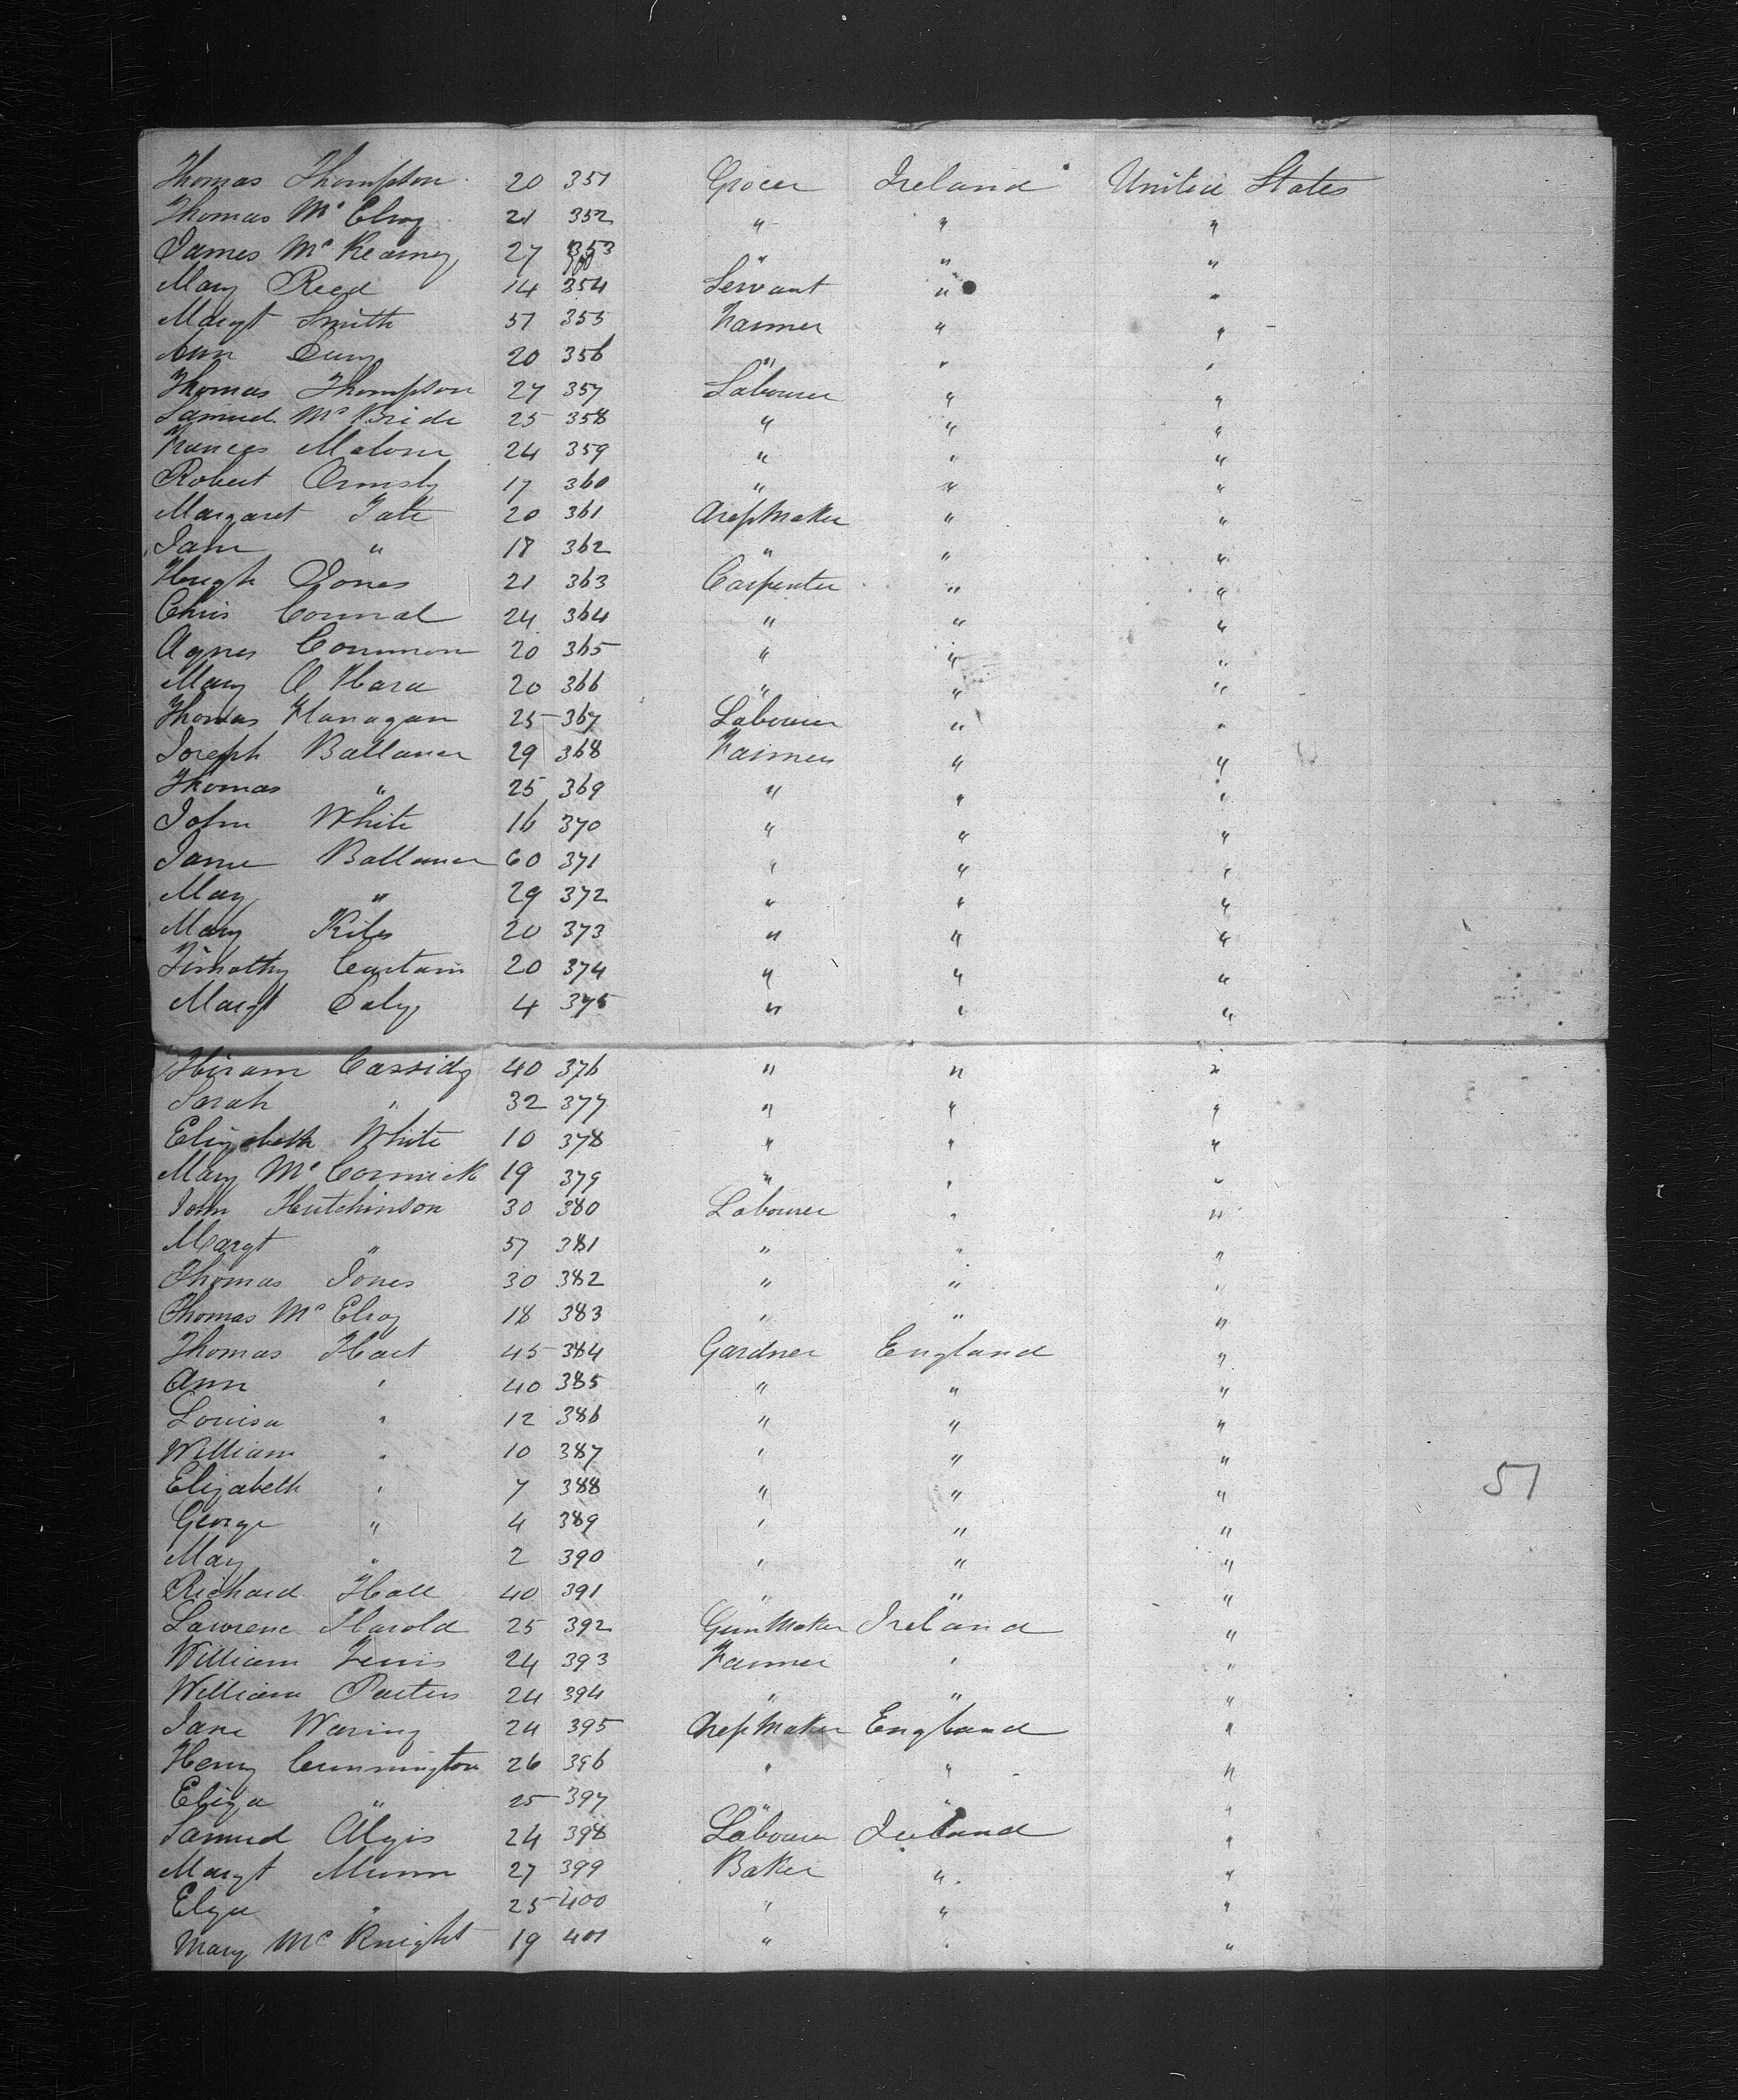 Thomas Thompson 20 351 Grocer Ireland United States
Thomas Mc Elroy 21 352 " " "
James Mc Kearney 27 353 " " "
Mary Reed 14 354 Servant " "
Margt Smith 57 355 Farmer " "
Ann 20 356 " " "
Thomas Thompson 27 357 Labourer " "
Samuel Mc Bride 25 358 " " "
Frances Malone 24 359 " " "
Robert Ormsby 17 360 " " "
Margaret Tate 20 361 Dressmaker " "
Jane " 18 362 " " "
Hugh Jones 21 363 Carpenter " "
Chris Connal 24 364 " " "
Agnes Common 20 365 " " "
Mary O Hara 20 366 " " "
Thomas Flanagan 25 367 Labourer " "
Joseph 29 368 Farmer " "
Thomas " 25 369 " " "
John White 16 370 " " "
Jane 60 371 " " "
Mary " 29 372 " " "
Mary 20 373 " " "
Timothy 20 374 " " "
Margt Daly 4 375 " " "
Hiram Cassidy 40 376 " " "
Sarah " 32 377 " " "
Elizabeth White 10 378 " " "
Mary Mc Cormick 19 379 " " "
John Hutchinson 30 380 Labourer " "
Margt " 57 381 " " "
Thomas Jones 30 382 " " "
Thomas Mc Elroy 18 383 " " "
Thomas Hart 45 384 Gardner England "
Ann " 40 385 " " "
Louisa " 12 386 " " "
William " 10 387 " " "
Elizabeth " 7 388 " " "
George " 4 389 " " "
Mary " 2 390 " " "
Richard Hall 40 391 " " "
Lawrence Harold 25 392 Gun Maker Ireland "
William 24 393 Farmer " "
William 24 394 " " "
Jane Waring 24 395 Dressmaker England "
Henry Cunnington 26 396 " " "
Eliza " 25 397 " " "
Samuel 24 398 Labourer Ireland "
Margt Munn 27 399 Baker " "
Eliza " 25 400 " " "
Mary Mc Knight 19 401 " " "